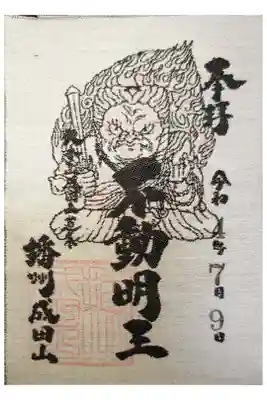 奉拝
令和4年7月9日
不動明王
播州成田山